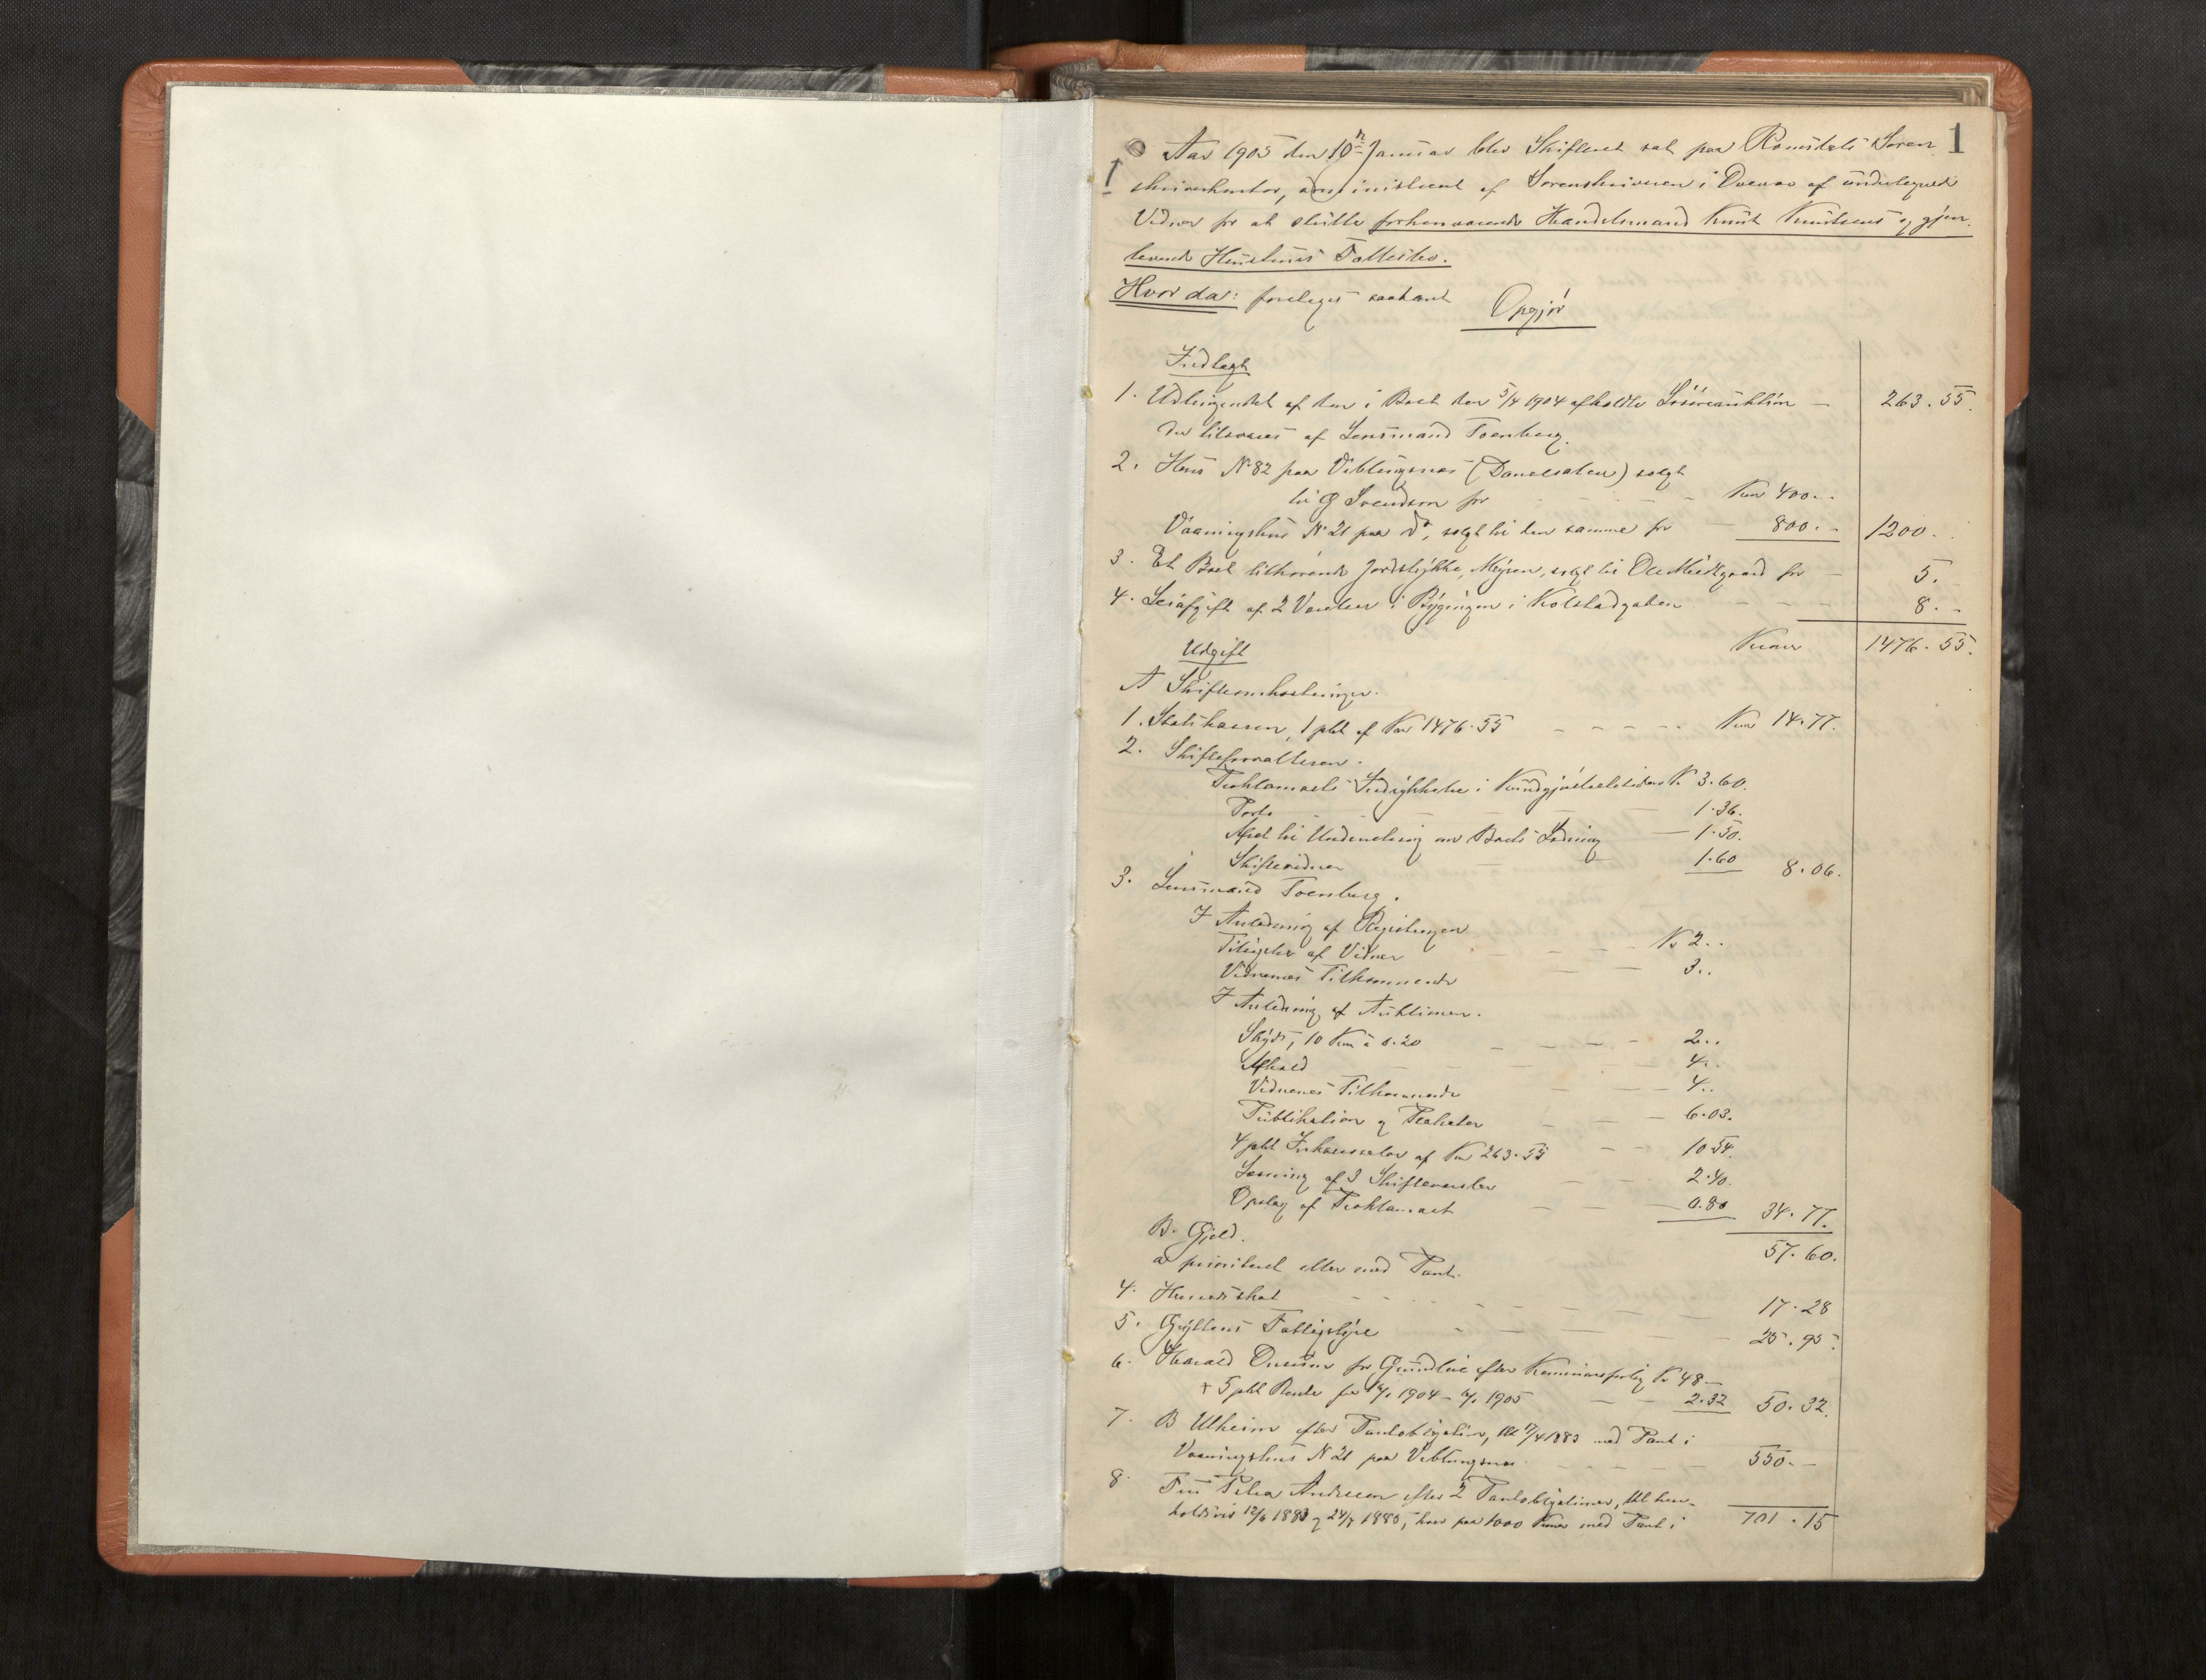 1
Aar 1905 den 10de Januar blev Skifteret sat paa Romsdals Soren
skriverkontor, administreret af Sorenskriveren i Overvær af undertegnede
Vidner for at slutte forhenværende Handelsmand Knut Knutsens og gjen-
levende Hustrus Fallitbo.
Hvorda: fremlagdes saadant
Opgjør
Indtægt
1. Udbringendet af den i Boet den 5/4 1904 afholdte Løsøreauktion — 263.55.
der tilsvares af Lensmand Toenberg.
2. Hus No 82 paa Veblungsnes (Dansesalen) solgt
til O Svendsen for - - - Kr 400.-
Vaaningshus No 21 paa do, solgt til den samme for — 800.- 1200.
3. Et Boet tilhørende Jordstykke, Myren, solgt til Ole Midtgaard for — 5.-
4. Leiafgift af 2 Værelser i Bygningen i Kolstadgaten - - - 8.-
Kroner 1476.55.
Udgift
A Skifteomkostninger.
1. Statskassen, 1 pct af Kr 1476.55 - - - - Kr 14.77.
2. Skifteforvalteren.
Proklamaets Indrykkelse i Kundgjørelsestidende Kr 3.60.
Porto - - - 1.36.
Afset til Underretning om Boets Slutning — 1.50.
Skiftevidner — 1.60 8.06.
3. Lensmand Toenberg.
I Anledning af Registreringen
Tilsigelse af Vidner - - - Kr 2..
Vidnernes Tilkommende — 3..
I Anledning af Auktionen.
Skyds, 10 Km à 0.20 - - - 2..
Afhold — 4..
Vidnernes Tilkommende — 4..
Publikation og Plakater — 6.03.
4 pct Inkassasalær af Kr 263.55 - - 10.54.
Læsning af 3 — 2.40.
Opslag af Proklamaet - - 0.80 34.77.
57.60.
B. Gjeld.
a prioriteret eller med Pant.
4. Herredsskat - - - 17.28
5. Gryttens Fattigstyre - - - 25.95.
6. Harald for Grundleie efter Kr 48.—
+ 5 pct Rente fra 1904 - 1905 — 2.32 50.32.
7. B Ulheim efter Pantobligation, dat 17/4 1883 med Pant i
Vaaningshus No 21 paa Veblungsnes. - - - 550.—
8. Petra Andresen efter 2 Pantobligationer, dat hen-
holdsvis 12/6 1883 og 24/8 1885, hver paa 1000 Kroner med Pant i 701.15